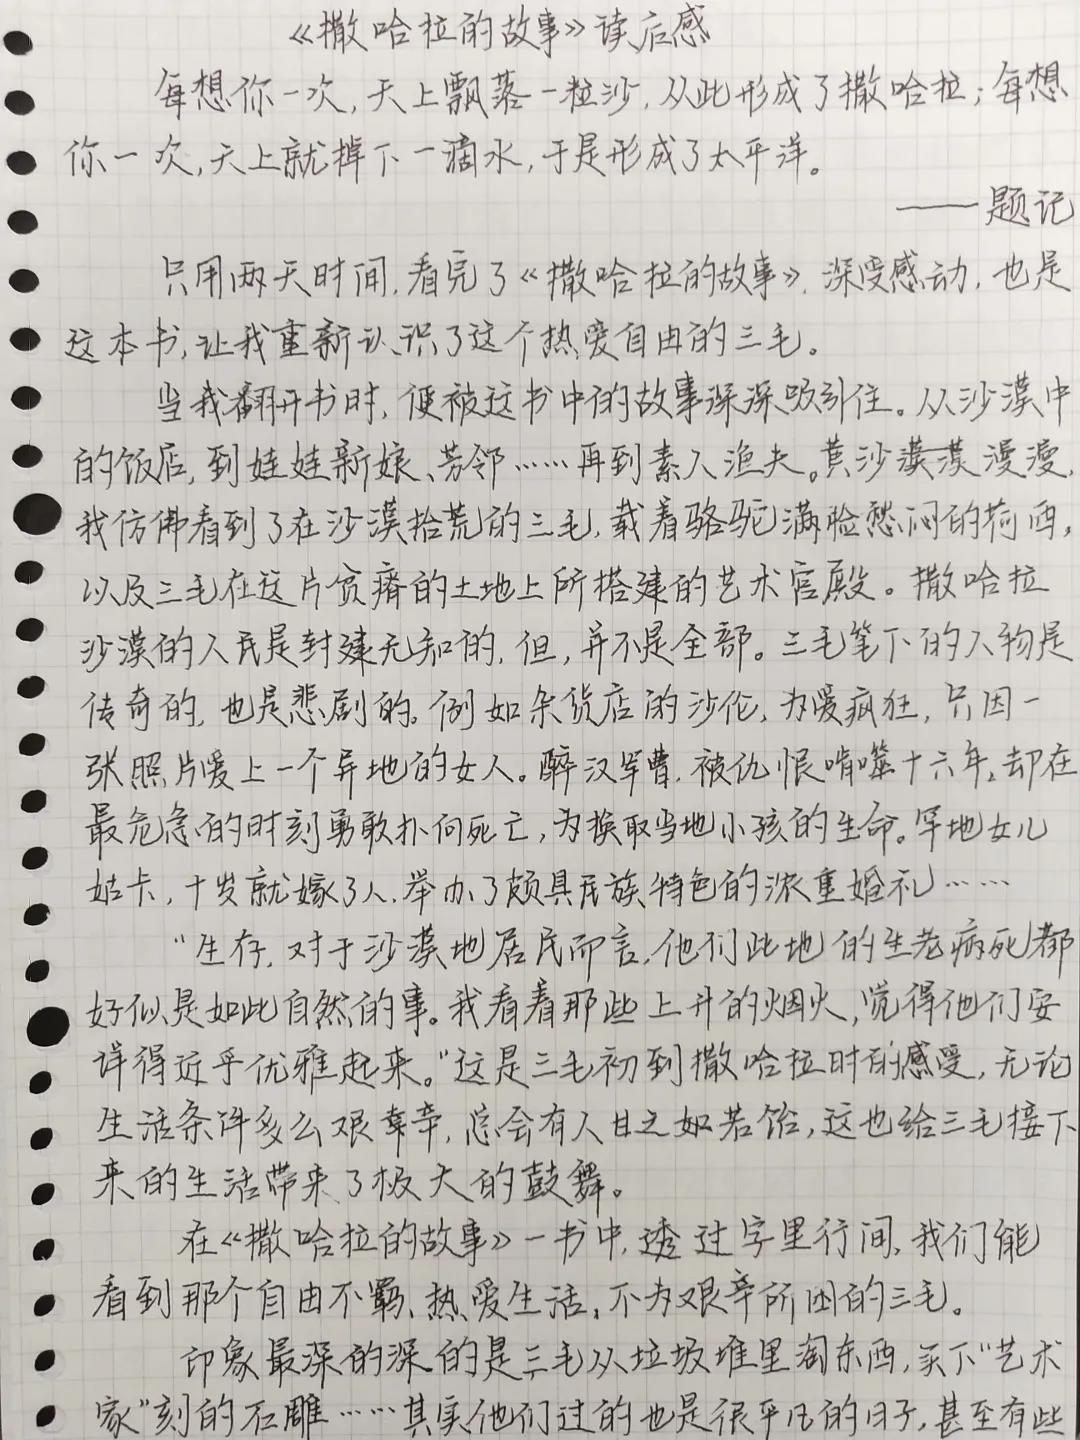 《撒哈拉的故事》读后感
每想你一次，天上飘落一粒沙，从此形成了撒哈拉；每想
你一次，天上就掉下一滴水，于是形成了太平洋。
——题记
只用两天时间，看完了《撒哈拉的故事》，深受感动，也是
这本书，让我重新认识了这个热爱自由的三毛。
当我翻开书时，便被这书中的故事深深吸引住。从沙漠中
的饭店，到娃娃新娘、芳邻……再到素人渔夫。黄沙漠漠漫漫，
我仿佛看到了在沙漠拾荒的三毛，载着骆驼满脸愁闷的荷西，
以及三毛在这片贫瘠的土地上所搭建的艺术宫殿。撒哈拉
沙漠的人民是封建无知的，但，并不是全部。三毛笔下的人物是
传奇的，也是悲剧的。例如杂货店的沙伦，为爱疯狂，只因一
张照片爱上一个异地的女人。醉汉罕曹，被仇恨啃噬十六年，却在
最危急的时刻勇敢扑向死亡，为换取当地小孩的生命。罕地女儿
姑卡，十岁就嫁了人，举办了颇具民族特色的浓重婚礼……
“生存，对于沙漠地居民而言，他们此地的生老病死都
好似是如此自然的事。我看着那些上升的烟火，觉得他们安
详得近乎优雅起来。”这是三毛初到撒哈拉时的感受，无论
生活条件多么艰辛，总会有人甘之如若饴，这也给三毛接下
来的生活带来了极大的鼓舞。
在《撒哈拉的故事》一书中，透过字里行间，我们能
看到那个自由不羁、热爱生活，不为艰辛所困的三毛。
印象最深的深的是三毛从垃圾堆里淘东西，买下“艺术
家”刻的石雕……其实他们过的也是很平凡的日子，甚至有些